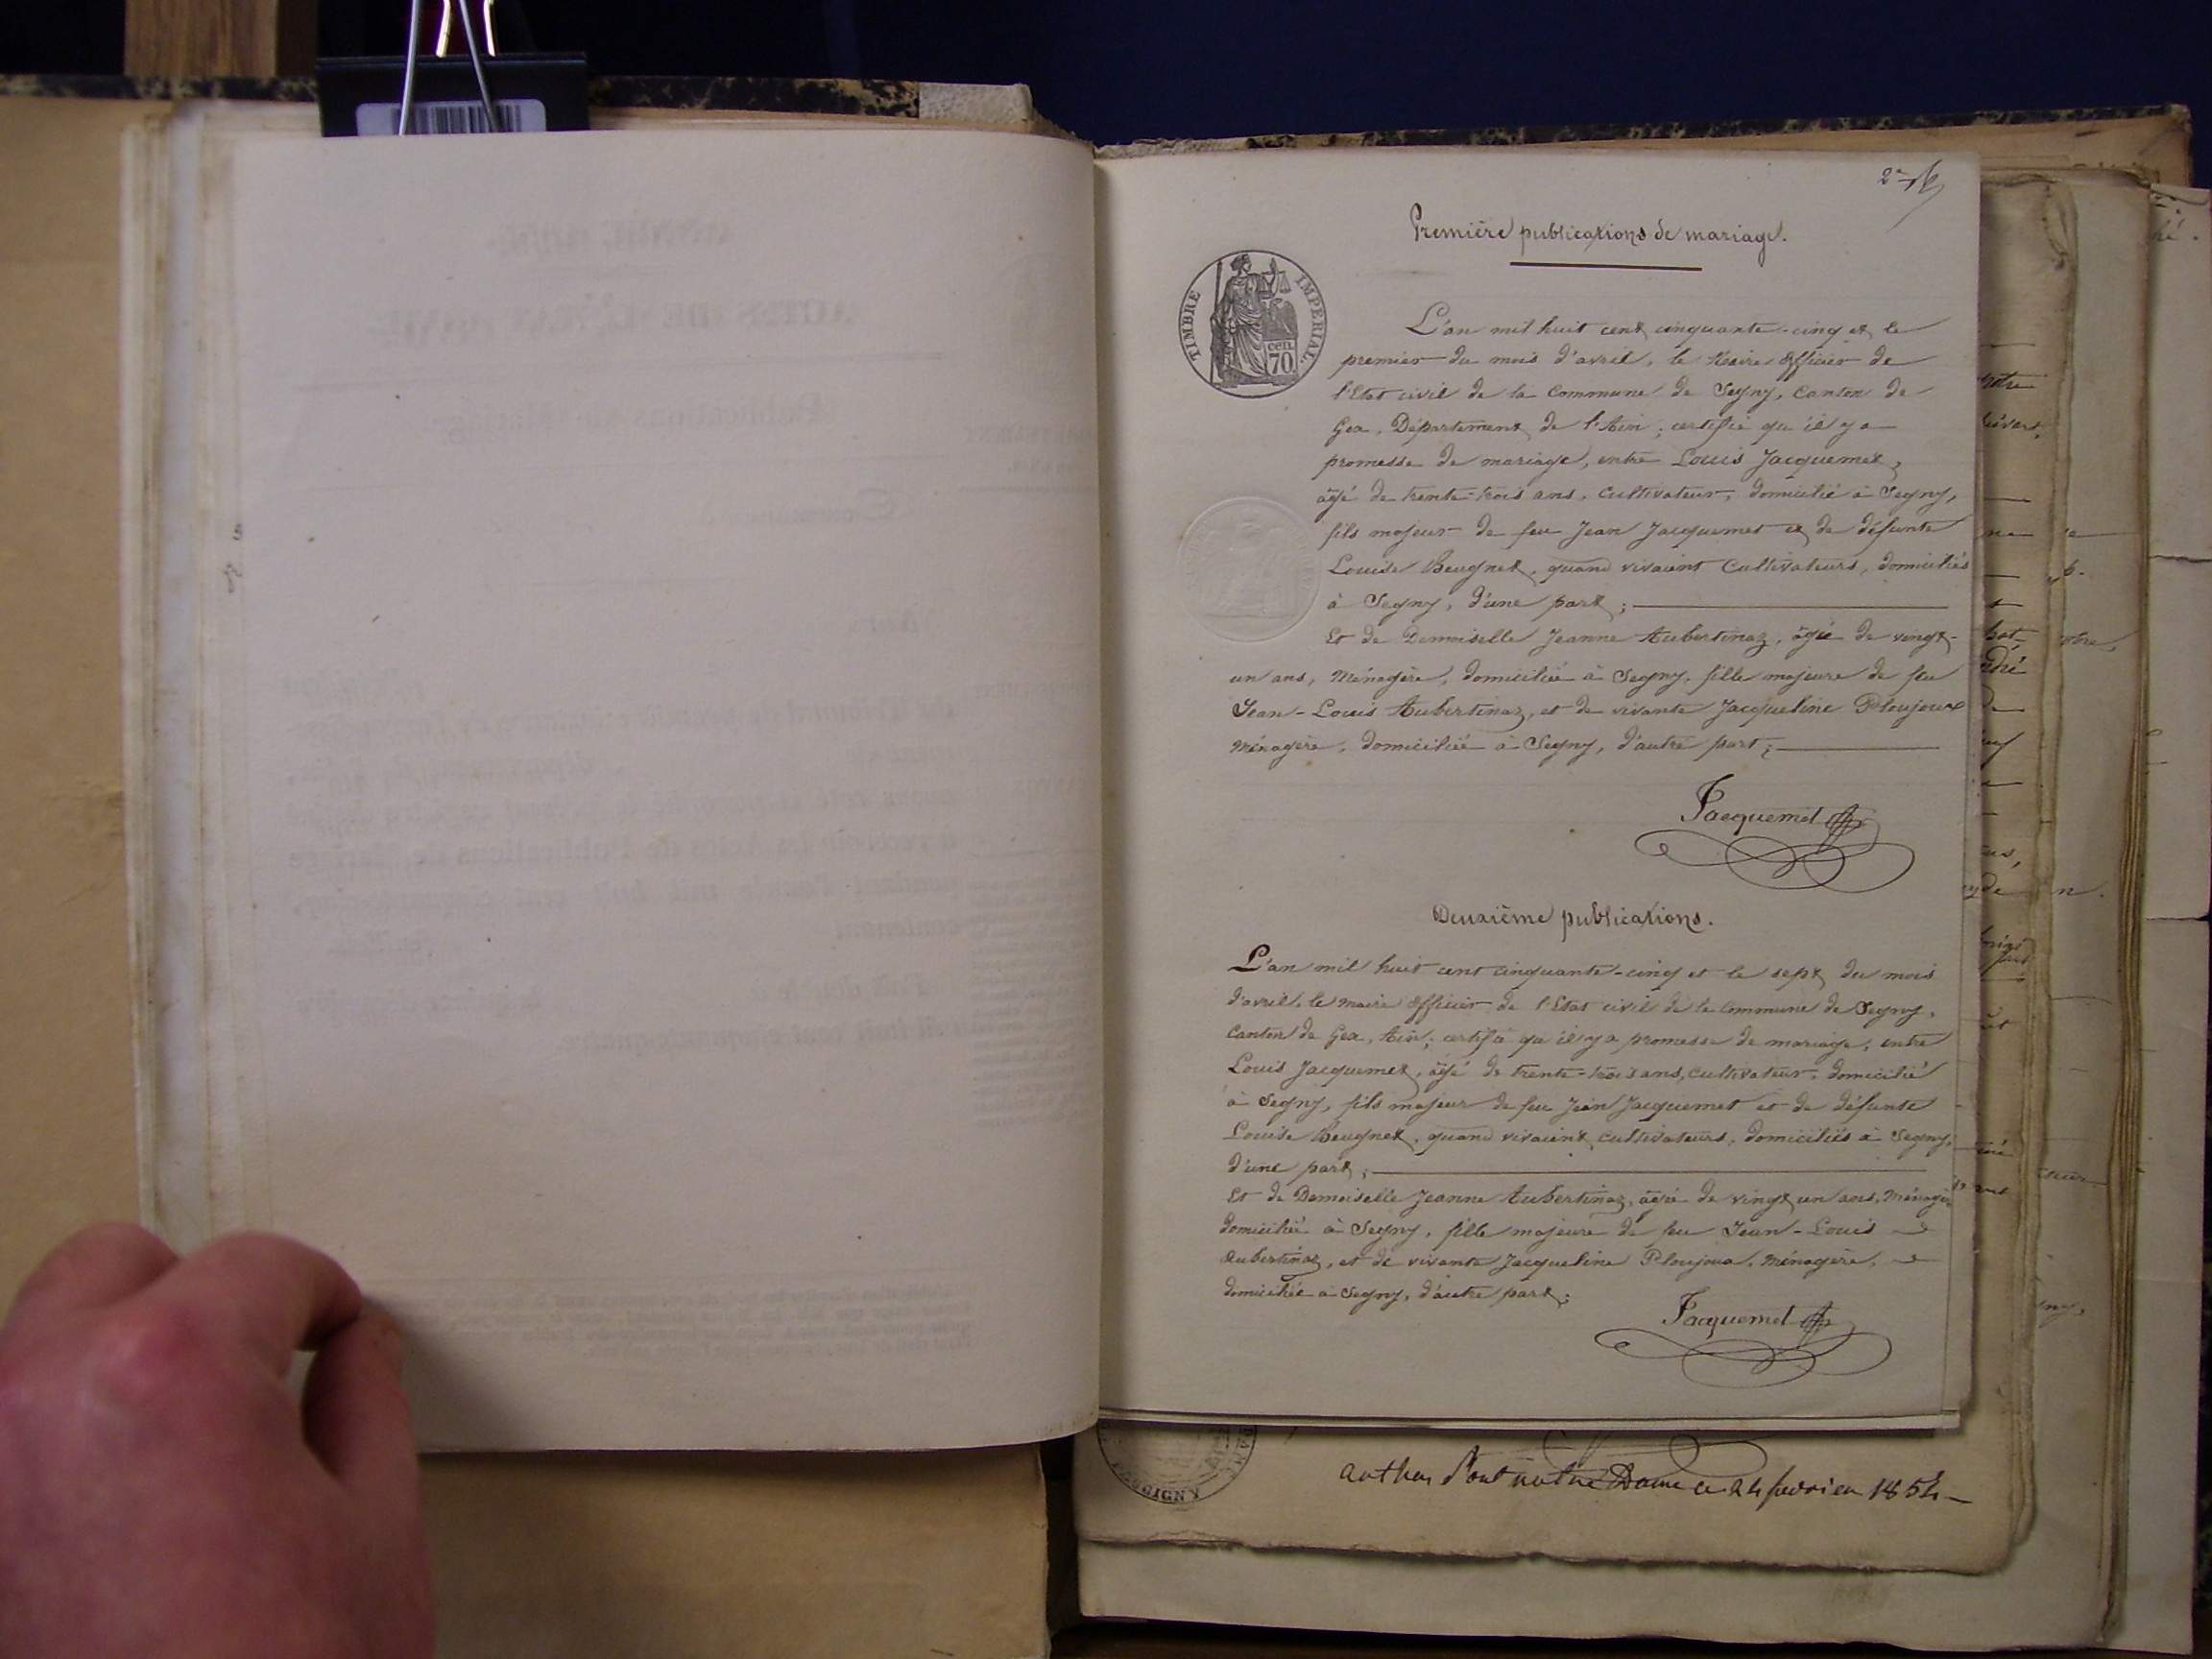 Première publications de mariage.
TIMBRE IMPERIAL
cen.
70
L'an mil huit cent cinquante-cinq et le
premier du mois d'avril, le Maire Officier de
l'Etat civil de la Commune de Segny, Canton de
Gex, Département de l'Ain; certifie qu'il y a
promesse de mariage, entre Louis Jacquemet,
âgé de trente-trois ans, Cultivateur, domicilié à Segny,
fils majeur de feu Jean Jacquemet et de défunte
Louise, quand vivaient Cultivateurs, domiciliés
à Segny, d'une part;
Et de Demoiselle Jeanne Aubertinaz, âgée de vingt-
un ans, Ménagère, domiciliée à Segny, fille majeure de feu
Jean-Louis Aubertinaz, et de vivante Jacqueline Ploujoux
Ménagère, domiciliée à Segny, d'autre part;
Jacquemet
Deuxième publications.
L'an mil huit cent cinquante-cinq et le sept du mois
d'avril, le maire Officier de l'Etat civil de la Commune de Segny,
Canton de Gex, Ain; certifie qu'il y a promesse de mariage, entre
Louis Jacquemet, âgé de trente-trois ans, cultivateur, domicilié
à Segny, fils majeur de feu Jean Jacquemet et de défunte
Louise, quand vivaient cultivateurs, domiciliés à Segny,
d'une part;
Et de Demoiselle Jeanne Aubertinaz, âgée de vingt un ans, Ménagère
domiciliée à Segny, fille majeure de feu Jean-Louis
Aubertinaz, et de vivante Jacqueline Ploujoux, Ménagère,
domiciliée à Segny, d'autre part;
Jacquemet
Dame ce 24 fevrier 1854